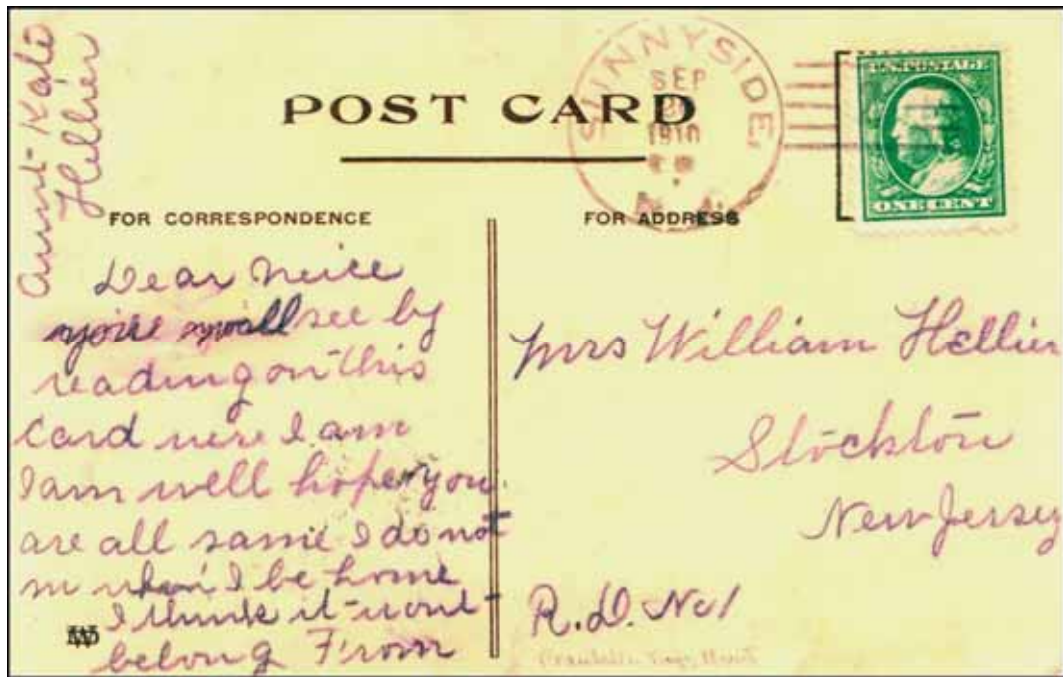 Aunt Kate
Hellier
POST CARD
SUNNYSIDE,
SEP
1910
U.S. POSTAGE
ONE CENT
FOR CORRESPONDENCE
FOR ADDRESS
Dear Neice
you will see by
reading on this
Card were I am
I am well hope you
are all same I do not
when I be home
I think it wont
belong From
Mrs William Hellier
Stockton
New Jersey
R.D. No 1